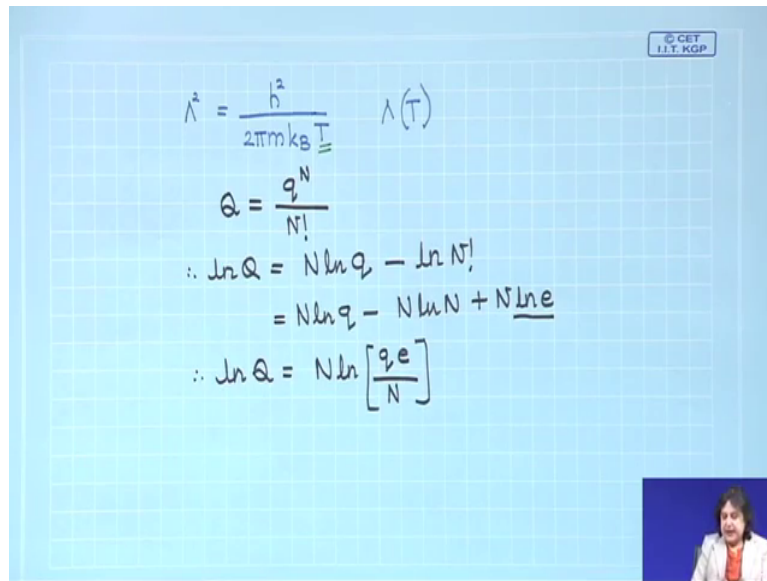 © CET
I.I.T. KGP
Λ² = h² / 2πmk_B T    Λ(T)
Q = q^N / N!
∴ ln Q = N ln q − ln N!
= N ln q − N ln N + N ln e
∴ ln Q = N ln [qe / N]